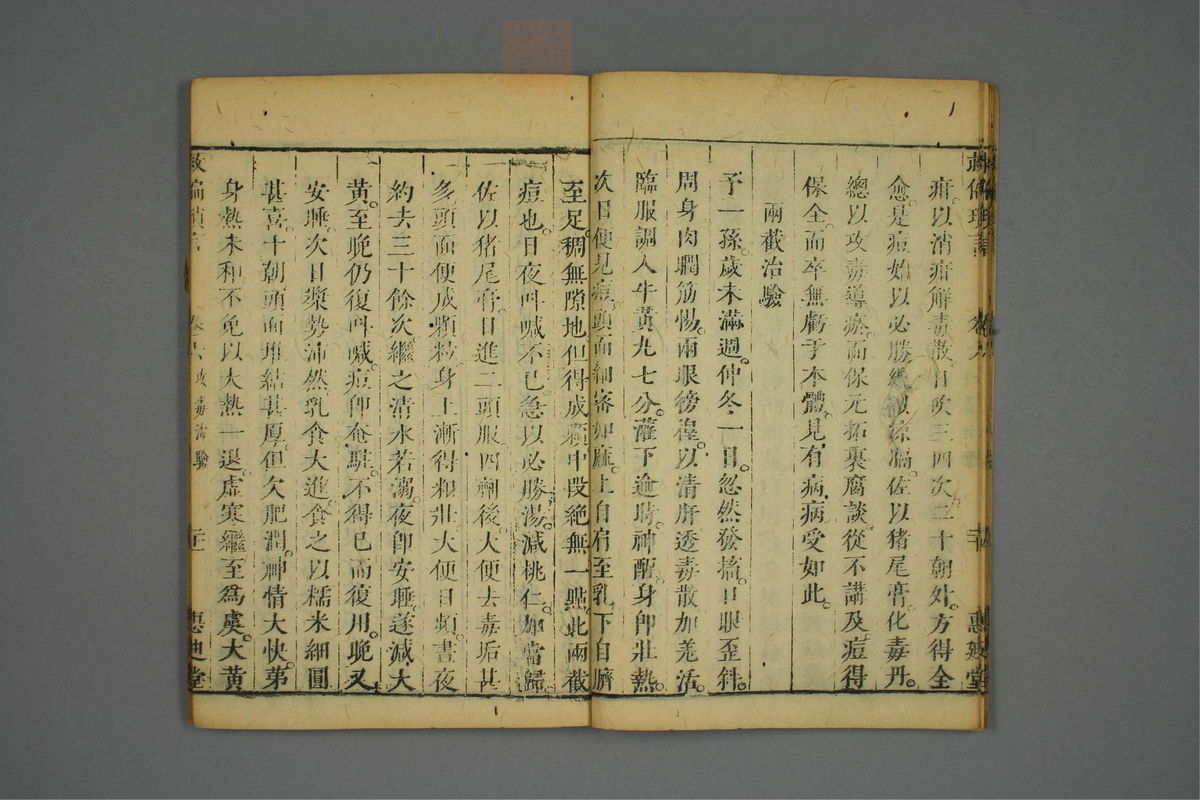 疳以消疳解毒散日吹三四次二十朝外方得全
愈是痘始以必勝繼涼膈佐以猪尾膏化毒丹
總以攻毒導瘀而保元拓裏腐談從不講及痘得
保全而卒無虧于本體見有病病受如此
兩截治驗
予一孫歲未滿週仲冬一日忽然發搐口眼歪斜
周身肉瞤筋惕兩眼徬徨以清肝透毒散加羌活
臨服調入牛黃九七分灌下逾時神酣身即壯熱
次日便見痘頭面細密如麻上自肩至乳下自臍
至足稠無隙地但得成顆中段絕無一點此兩截
痘也日夜叫喊不已急以必勝湯減桃仁加當歸
佐以猪尾膏日進二頭服四劑後大便去毒垢甚
多頭面便成顆粒身上漸得粗壯大便日頻晝夜
約去三十餘次繼之清水若溺夜即安睡遂減大
黃至晚仍復叫喊痘即奄駐不得已而復用晚又
安睡次日漿勢沛然乳食大進食之以糯米細圓
甚喜十朝頭面堆結甚厚但欠肥潤神情大快弟
身熱未和不免以大熱一退虛寒繼至為虞大黃
救偏瑣言
卷六 攻毒治驗
惠迪堂